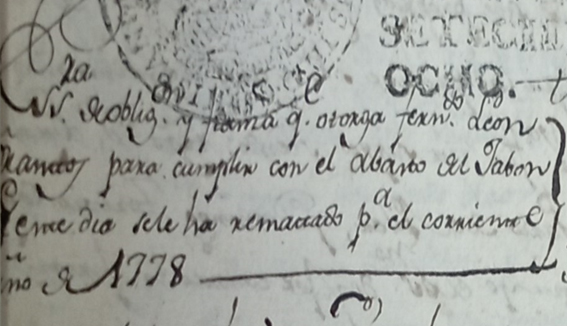 SETECIE
OCHO.
Oblig.on y fianza q. otorga fern.do Leon
para cumplir con el abasto del Jabon
este dia sele ha rematado p.a el corriente
ño de 1778